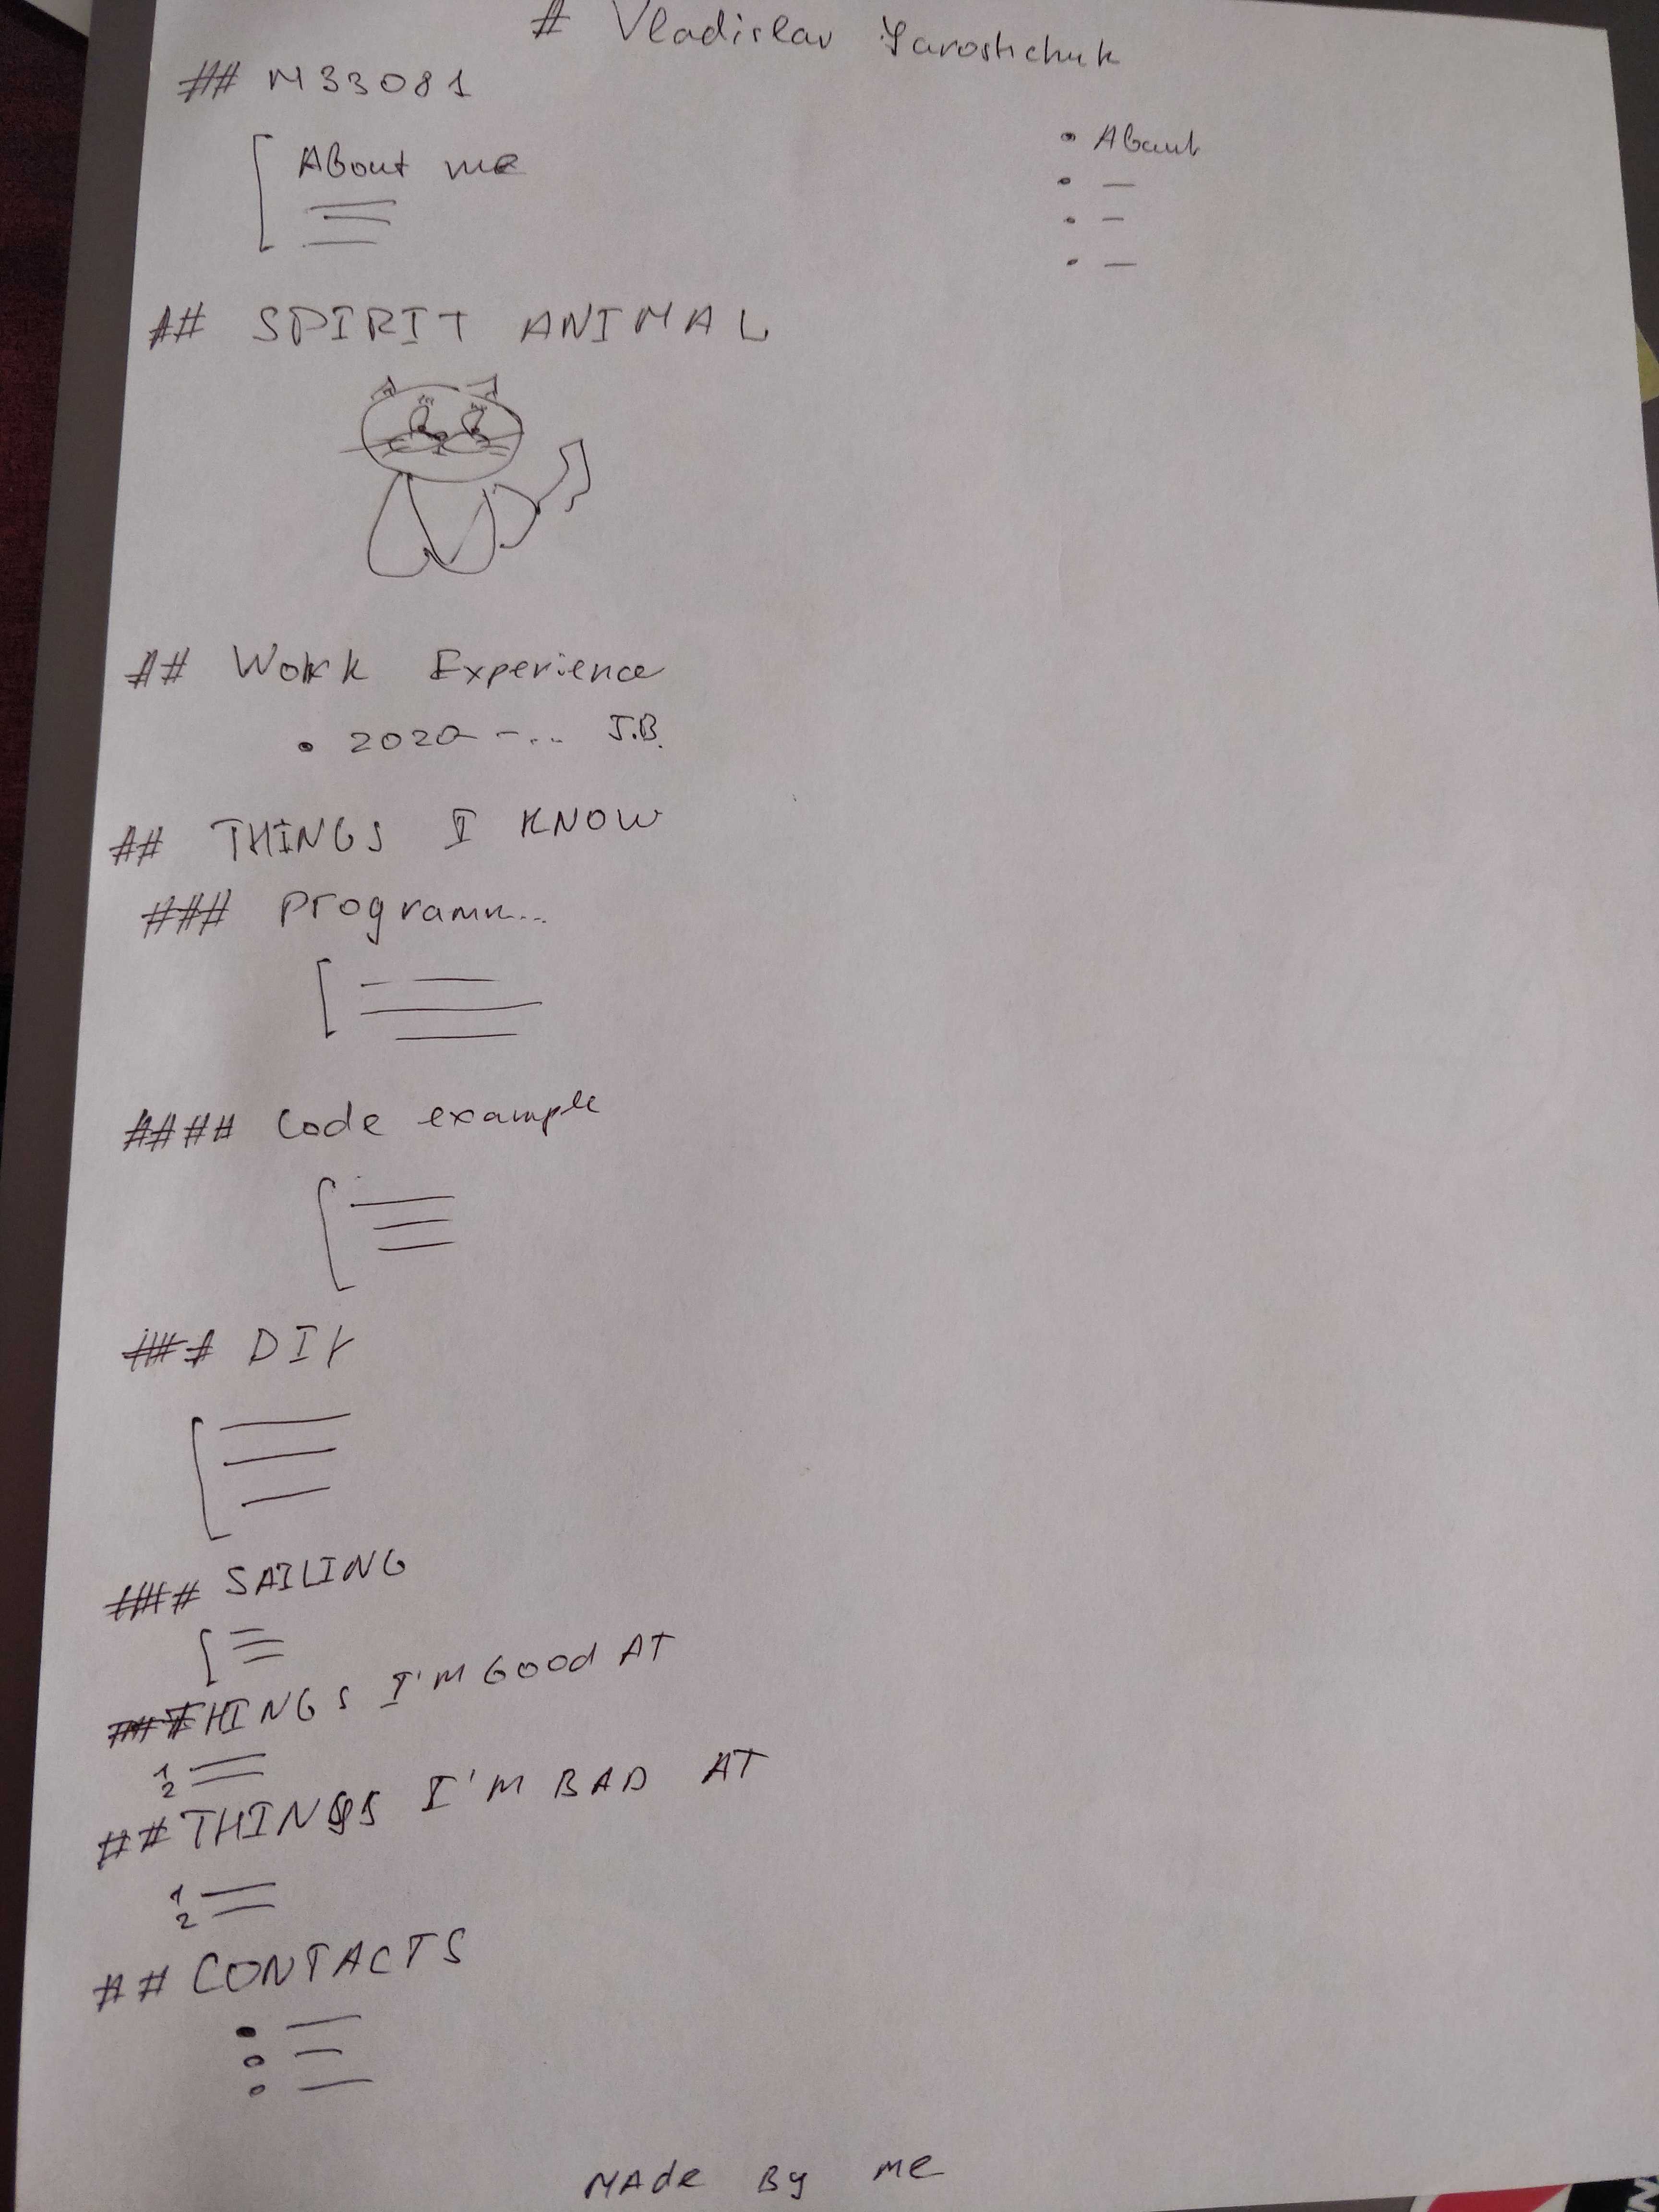 # Vladislav Yaroshchuk
## M33081
About me
• About
•
•
•
## SPIRIT ANIMAL
## Work Experience
• 2020 -... J.B.
## THINGS I KNOW
### Programm...
#### Code example
### DIY
### SAILING
## THINGS I'M GOOD AT
1
2
## THINGS I'M BAD AT
1
2
## CONTACTS
•
•
•
MADE BY ME